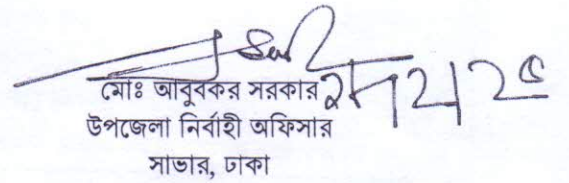 মোঃ আবুবকর সরকার
উপজেলা নির্বাহী অফিসার
সাভার, ঢাকা